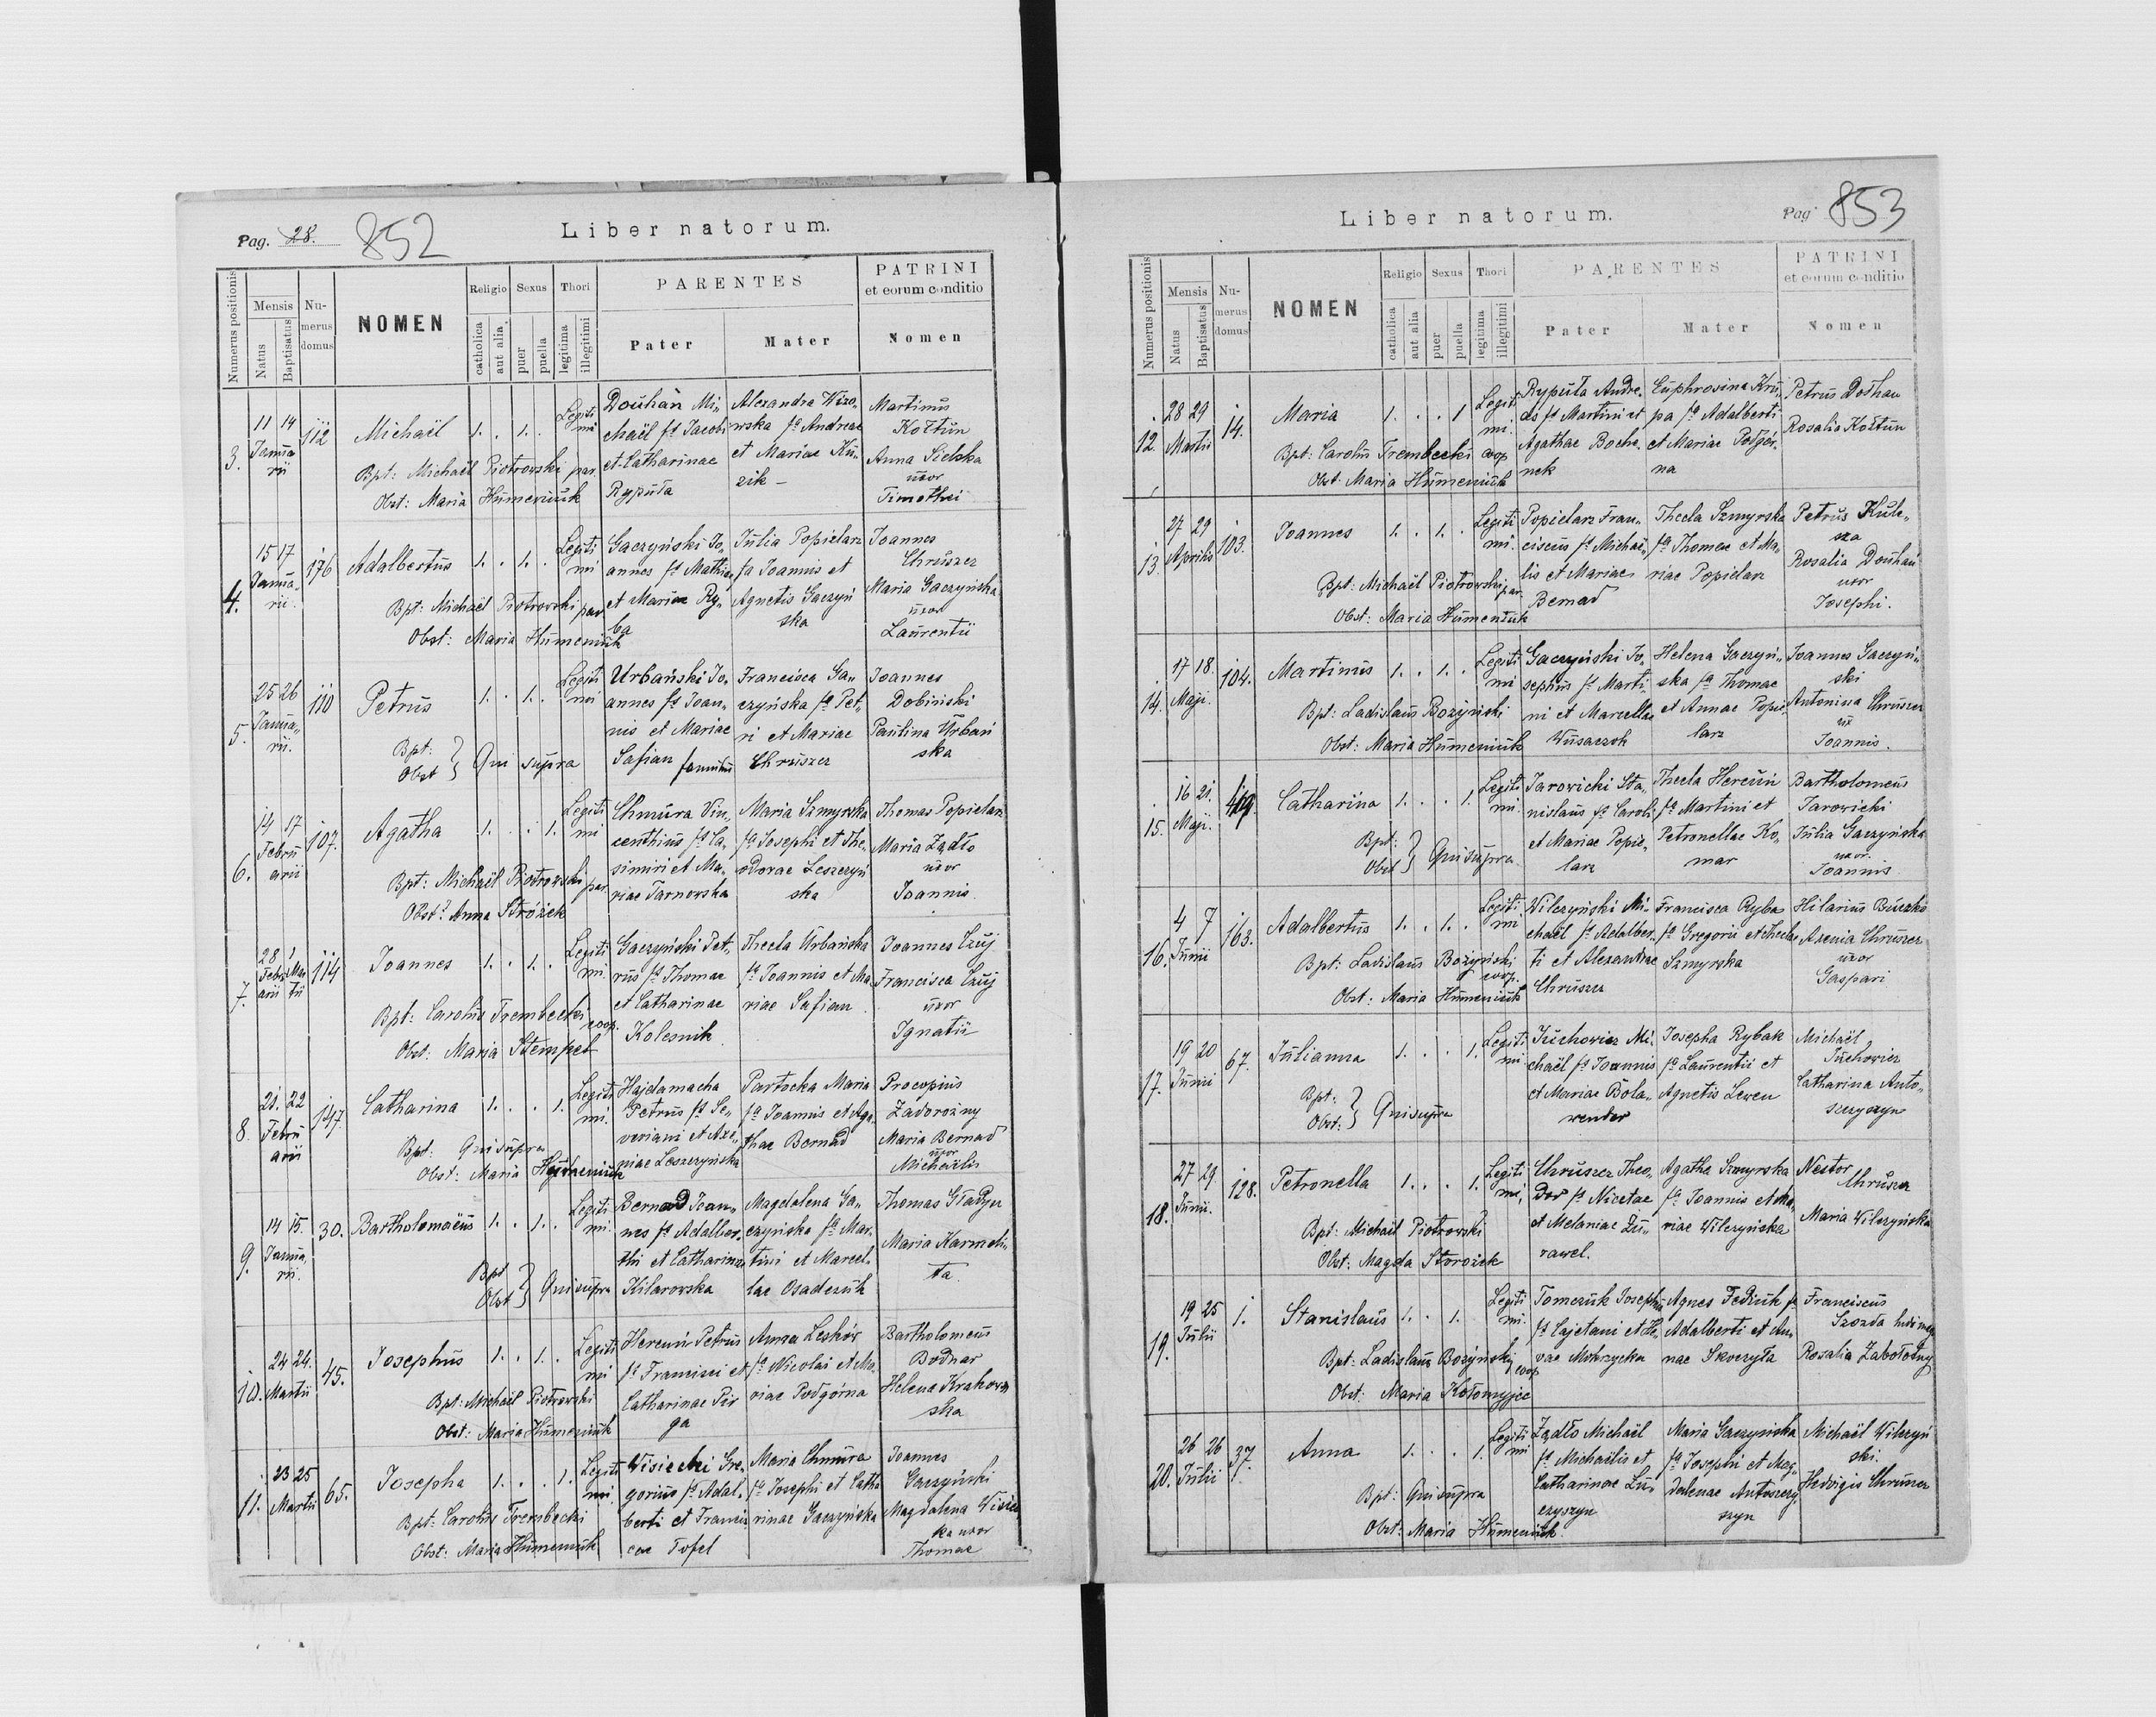 Pag. 28. 852 Liber natorum.
Numerus positionis
Mensis
Natus
Baptisatus
Numerus domus
NOMEN
Religio Sexus Thori
catholica
aut alia
puer
puella
legitima
illegitimi
PARENTES
Pater Mater
PATRINI
et eorum conditio
Nomen
3. 11 14 Januarii 112 Michaël 1. . 1. . Legitimi
Bpt: Michaël Piotrowski par.
Obst: Maria Humeniuk
Douhań Mi-
chaël fs Jacobi
et Catharinae
Ryputa
Alexandra Wizo-
wska fa Andreae
et Mariae Ku-
zik –
Martinus
Kottun
Anna Sielska
uxor
Timothei
4. 15 17 Januarii 176 Adalbertus 1. . 1. . Legitimi
Bpt: Michaël Piotrowski par
Obst: Maria Humeniuk
Gaczyński Jo-
annes fs Mathiae
et Mariae Ry-
ba
Julia Popielarz
fa Joannis et
Agnetis Gaczyń
ska
Joannes
Chruszcz
Maria Gaczyńska
uxor
Laurentii
5. 25 26 Januarii. 110 Petrus 1. . 1. . Legitimi
Bpt:
Obst } Qui supra
Urbański Jo-
annes fs Joan-
nis et Mariae
Safian
Francisca Ga-
czyńska fa Pet-
ri et Mariae
Chruszcz
Joannes
Dobiński
Paulina Urbań
ska
6. 14 17 Februarii 107. Agatha 1. . . 1. Legitimi
Bpt: Michaël Piotrowski par.
Obst: Anna Stróżek
Chmura Vin-
centhius fs Ca-
simiri et Ma-
riae Tarnowska
Maria Szmyrska
fa Josephi et The-
odorae Leszczyń
ska
Thomas Popielarz
Maria Żądło
uxor
Joannis
7. 28 Februarii 1 Martii 114 Joannes 1. . 1. . Legitimi.
Bpt: Carolus Trembecki coop.
Obst: Maria Stempel
Gaczyński Pet-
rus fs Thomae
et Catharinae
Kolesnik
Thecla Urbańska
fa Joannis et Ma-
riae Safian
Joannes Czuj
Francisca Czuj
uxor
Ignatii
8. 21. 22 Februarii 147. Catharina 1. . . 1. Legitimi.
Bpt: Qui supra
Obst: Maria Humeniuk
Hajdamacha
Petrus fs Se-
veriani et Axe-
niae Leszczyńska
Partocka Maria
fa Joannis et Aga-
thae Bernad
Procopius
Zadorożny
Maria Bernad
uxor
Michaëlis
9. 14 15. Januarii. 30. Bartholomaëus 1. . 1. . Legitimi.
Bpt
Obst } Qui supra
Bernad Joan-
nes fs Adalber-
thi et Catharinae
Kilarowska
Magdalena Ga-
czyńska fa Mar-
tini et Marcel-
lae Osadczuk
Thomas Gładyn
Maria Karmeli-
ta.
10. 24 24. Martii 45. Josephus 1. . 1. . Legitimi
Bpt: Michaël Piotrowski
Obst: Maria Humeniuk
Hercuń Petrus
fs Francisci et
Catharinae Pir
ga
Anna Leskiv
fa Nicolai et Ma-
riae Podgórna
Bartholomeus
Bodnar
Helena Krakow
ska
11. 23 25 Martii 65. Josepha 1. . . 1. Legitimi.
Bpt: Carolus Trembecki
Obst: Maria Humeniuk
Wisiecki Gre-
gorius fs Adal-
berti et Francis
cae Tofel
Maria Chmura
fa Josephi et Catha
rinae Gaczyńska
Joannes
Gaczyński
Magdalena Wisiec
ka uxor
Thomae
Liber natorum. Pag 853
Numerus positionis
Mensis
Natus
Baptisatus
Numerus domus
NOMEN
Religio Sexus Thori
catholica
aut alia
puer
puella
legitima
illegitimi
PARENTES
Pater Mater
PATRINI
et eorum conditio
Nomen
12. 28 29 Martii 14. Maria 1. . . 1 Legitimi.
Bpt: Carolus Trembecki coop
Obst: Maria Humeniuk
Ryputa Andre-
as fs Martini et
Agathae Boche
nek
Euphrosina Kru-
pa fa Adalberti
et Mariae Podgór-
na
Petrus Douhan
Rosalia Kottun
13. 27 29 Aprilis 103. Joannes 1. . 1. . Legitimi.
Bpt: Michaël Piotrowski par.
Obst: Maria Humeniuk
Popielarz Fran-
ciscus fs Michaë-
lis et Mariae
Bernad
Thecla Szmyrska
fa Thomae et Ma-
riae Popielarz
Petrus Kule-
sza
Rosalia Douhań
uxor
Josephi.
14. 17 18. Maji. 104. Martinus 1. . 1. . Legitimi
Bpt: Ladislaus Bożyński
Obst: Maria Humeniuk
Gaczyński Jo-
sephus fs Marti-
ni et Marcellae
Wusaczok
Helena Gaczyń-
ska fa Thomae
et Annae Popie-
larz
Joannes Gaczyń-
ski
Antonina Chruszcz
ux
Joannis.
15. 16 21. Maji. Catharina 1. . . 1. Legitimi.
Bpt:
Obst } Qui supra
Jarowicki Sta-
nislaus fs Caroli
et Mariae Popie-
larz
Thecla Hercuń
fa Martini et
Petronellae Ko-
mar
Bartholomeus
Jarowicki
Julia Gaczyńska
uxor.
Joannis
16. 4 7 Junii 163. Adalbertus 1. . 1. . Legitimi
Bpt: Ladislaus Bożyński coop.
Obst: Maria Humeniuk
Wilczyński Mi-
chaël fs Adalber-
ti et Alexandrae
Chruszcz
Francisca Ryba
fa Gregorii et Theclae
Szmyrska
Hilarius Buczko
Axenia Chruszcz
uxor
Gaspari
17. 19 20 Junii 67. Julianna 1. . . 1. Legitimi.
Bpt:
Obst: } Qui supra
Juchowicz Mi-
chaël fs Joannis
et Mariae Bola-
render
Josepha Rybak
fa Laurentii et
Agnetis Lewen
Michaël
Juchowicz
Catharina Anto-
szczyszyn
18. 27 29. Junii. 128. Petronella 1. . . 1. Legitimi,
Bpt: Michaël Piotrowski
Obst: Magda Storożek
Chruszcz Theo-
dor fs Nicetae
et Melaniae Żu-
rawel.
Agatha Szmyrska
fa Joannis et Ma-
riae Wilczyńska
Nestor
Chruszcz
Maria Wilczyńska
19. 19 25 Julii 1. Stanislaus 1. . 1. Legitimi.
Bpt: Ladislaus Bożyński coop
Obst: Maria Kołomyjec
Tomczuk Josephus
fs Cajetani et He-
vae Mokrzycka
Agnes Fediuk fa
Adalberti et An-
nae Skoczyła
Franciscus
Szozda
Rosalia Zabołotny
20. 26 26 Julii 37. Anna 1. . . 1. Legitimi
Bpt: Qui supra
Obst: Maria Humeniuk
Żądło Michaël
fs Michaëlis et
Catharinae Lu-
czyszyn
Maria Gaczyńska
fa Josephi et Mag-
dalenae Antoszczy-
szyn
Michaël Wilczyń
ski.
Hedvigis Chruszcz